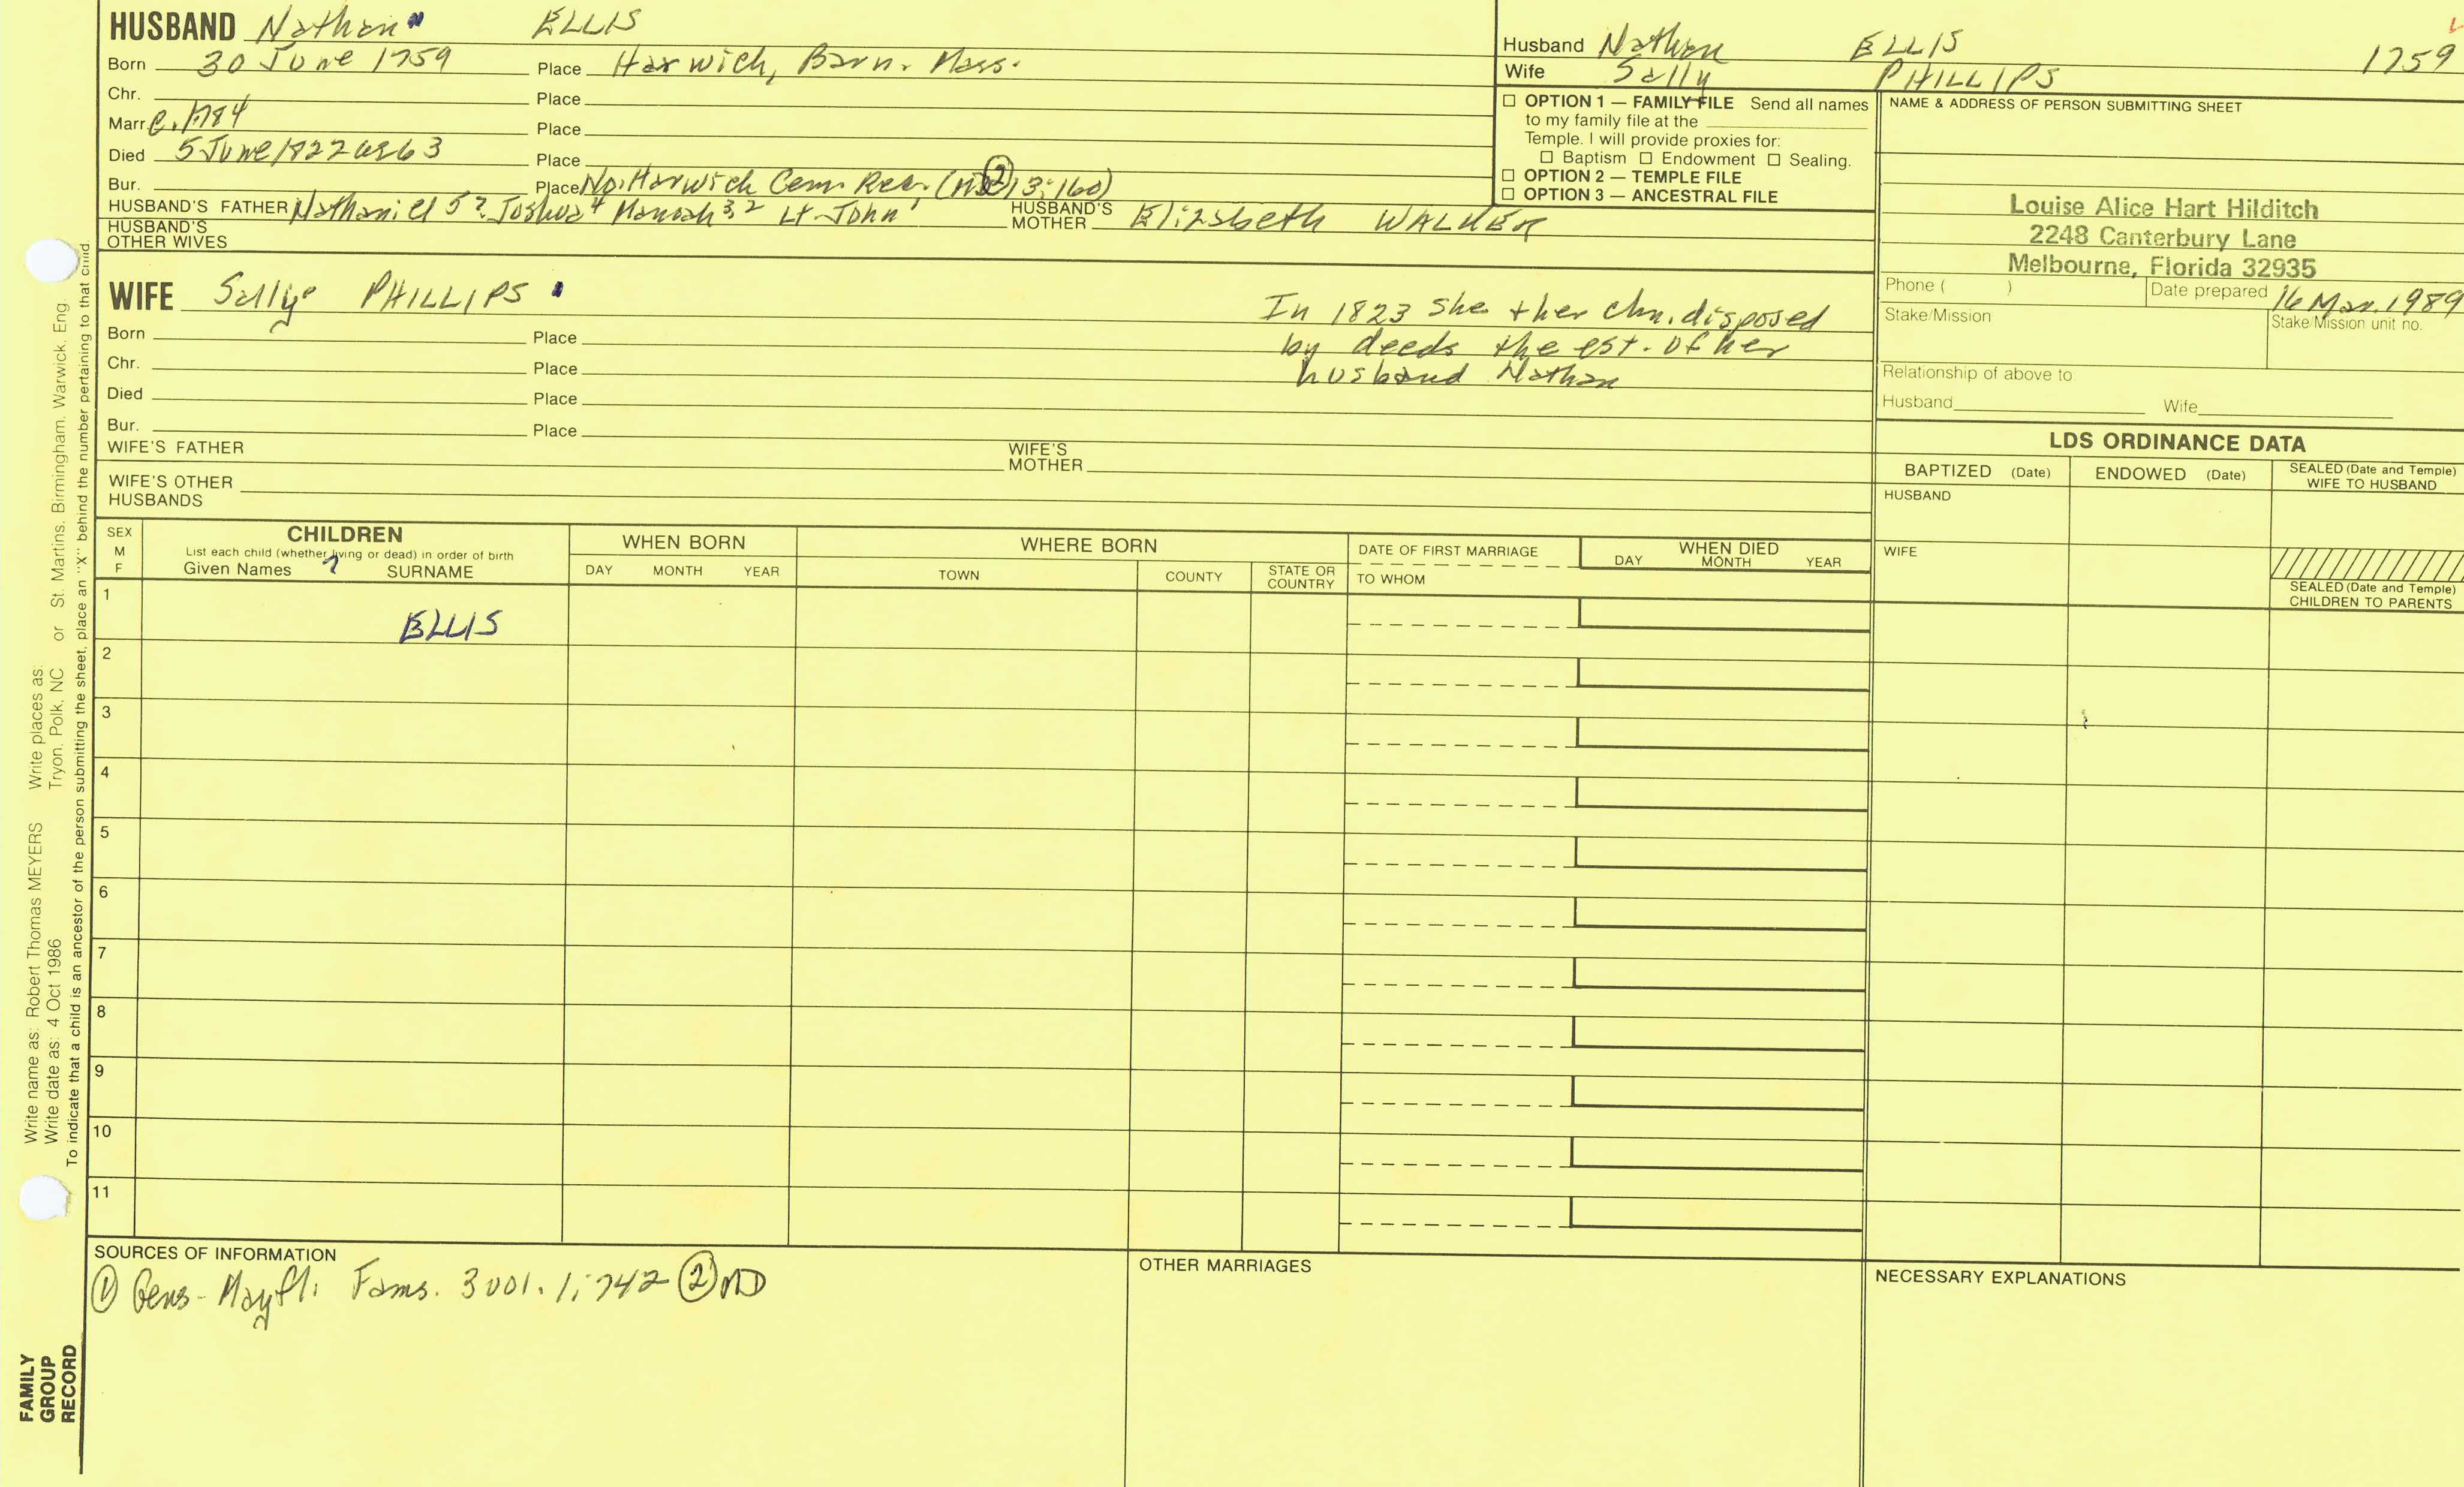 HUSBAND Nathan ELLIS
Born 30 June 1759 Place Harwich, Barn. Mass.
Chr. Place
Marr c. 1784 Place
Died 5 June 1822 ae 63 Place
Bur. Place No. Harwich Cem. Rec. (MD 2 13:160)
HUSBAND'S FATHER Nathaniel 5? Joshua 4 Manoah 3,2 Lt. John 1 HUSBAND'S MOTHER Elizabeth WALKER
HUSBAND'S OTHER WIVES
Husband Nathan ELLIS 1759
Wife Sally PHILLIPS
☐ OPTION 1 — FAMILY FILE Send all names
to my family file at the
Temple. I will provide proxies for:
☐ Baptism ☐ Endowment ☐ Sealing.
☐ OPTION 2 — TEMPLE FILE
☐ OPTION 3 — ANCESTRAL FILE
NAME & ADDRESS OF PERSON SUBMITTING SHEET
Louise Alice Hart Hilditch
2248 Canterbury Lane
Melbourne, Florida 32935
Phone ( ) Date prepared 16 Mar. 1989
Stake/Mission Stake/Mission unit no.
Relationship of above to
Husband Wife
WIFE Sally PHILLIPS
In 1823 she + her chn. disposed
by deeds the est. of her
husband Nathan
Born Place
Chr. Place
Died Place
Bur. Place
WIFE'S FATHER WIFE'S MOTHER
WIFE'S OTHER HUSBANDS
LDS ORDINANCE DATA
BAPTIZED (Date) ENDOWED (Date) SEALED (Date and Temple) WIFE TO HUSBAND
HUSBAND
WIFE
SEALED (Date and Temple)
CHILDREN TO PARENTS
SEX M F
CHILDREN
List each child (whether living or dead) in order of birth
Given Names ? SURNAME
WHEN BORN
DAY MONTH YEAR
WHERE BORN
TOWN COUNTY STATE OR COUNTRY
DATE OF FIRST MARRIAGE
TO WHOM
WHEN DIED
DAY MONTH YEAR
1 ELLIS
2
3
4
5
6
7
8
9
10
11
SOURCES OF INFORMATION
① Gens- Mayfl. Fams. 3 vol. 1:742 ② MD
OTHER MARRIAGES
NECESSARY EXPLANATIONS
Write name as: Robert Thomas MEYERS Write places as:
Write date as: 4 Oct 1986 Tryon, Polk, NC or St. Martins, Birmingham, Warwick, Eng
To indicate that a child is an ancestor of the person submitting the sheet, place an "X" behind the number pertaining to that child.
FAMILY
GROUP
RECORD